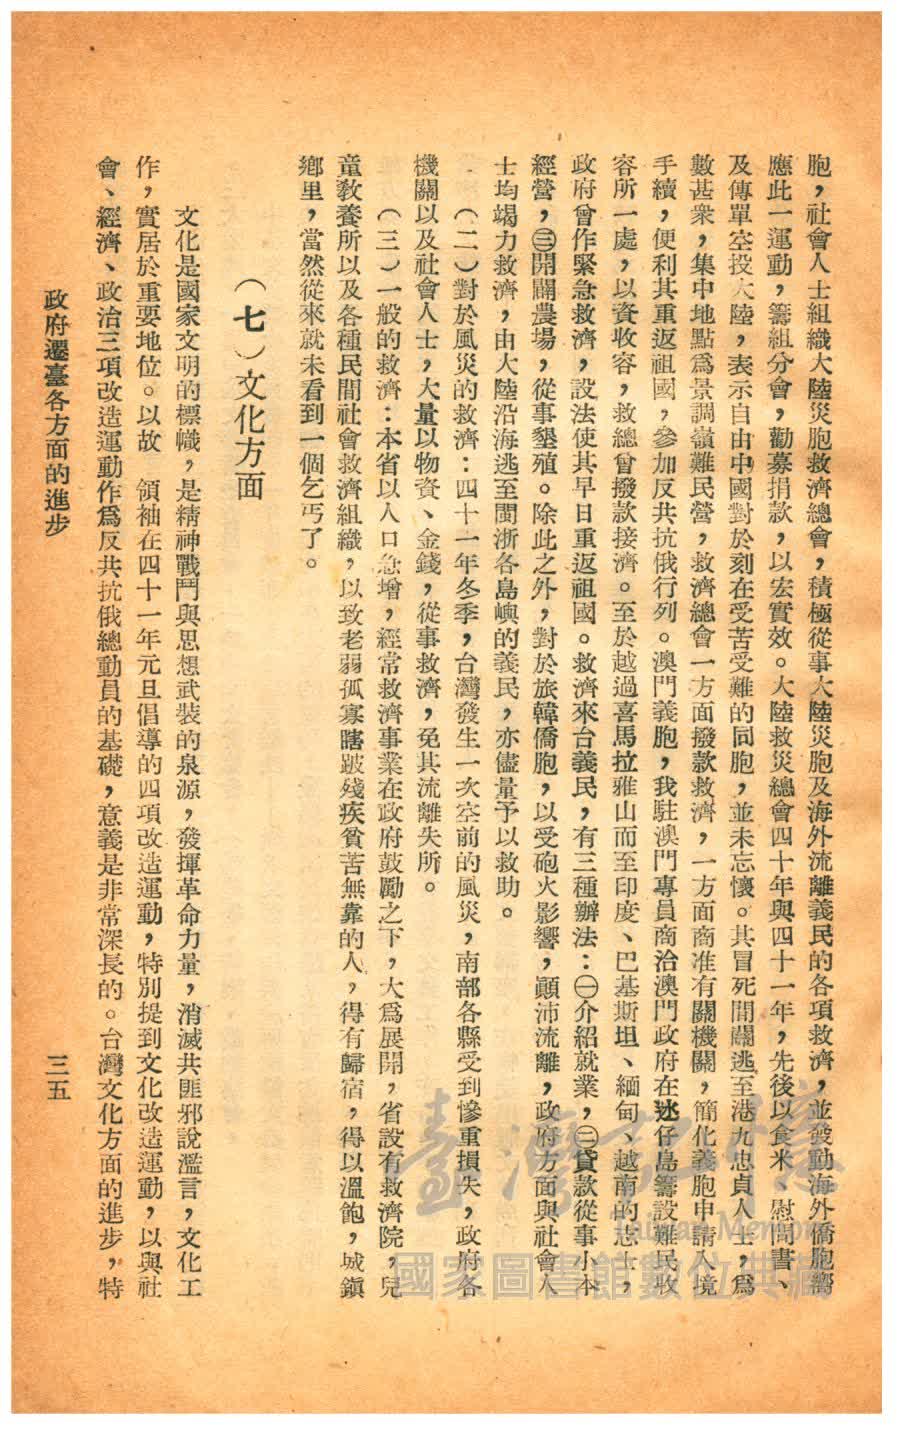 胞，社會人士組織大陸災胞救濟總會，積極從事大陸災胞及海外流離義民的各項救濟，並發動海外僑胞嚮
應此一運動，籌組分會，勸募捐款，以宏實效。大陸救災總會四十年與四十一年，先後以食米、慰問書、
及傳單空投大陸，表示自由中國對於刻在受苦受難的同胞，並未忘懷。其冒死間關逃至港九忠貞人士，爲
數甚衆，集中地點爲景調嶺難民營，救濟總會一方面撥款救濟，一方面商准有關機關，簡化義胞申請入境
手續，便利其重返祖國，參加反共抗俄行列。澳門義胞，我駐澳門專員商洽澳門政府在氹仔島籌設難民收
容所一處，以資收容，救總曾撥款接濟。至於越過喜馬拉雅山而至印度、巴基斯坦、緬甸、越南的志士，
政府曾作緊急救濟，設法使其早日重返祖國。救濟來台義民，有三種辦法：㊀介紹就業，㊁貸款從事小本
經營，㊂開闢農場，從事墾殖。除此之外，對於旅韓僑胞，以受砲火影響，顚沛流離，政府方面與社會人
士均竭力救濟，由大陸沿海逃至閩浙各島嶼的義民，亦儘量予以救助。
（二）對於風災的救濟：四十一年冬季，台灣發生一次空前的風災，南部各縣受到慘重損失，政府各
機關以及社會人士，大量以物資、金錢，從事救濟，免其流離失所。
（三）一般的救濟：本省以人口急增，經常救濟事業在政府鼓勵之下，大爲展開，省設有救濟院，兒
童敎養所以及各種民間社會救濟組織，以致老弱孤寡瞎跛殘疾貧苦無靠的人，得有歸宿，得以溫飽，城鎭
鄉里，當然從來就未看到一個乞丐了。
（七）文化方面
文化是國家文明的標幟，是精神戰鬥與思想武裝的泉源，發揮革命力量，消滅共匪邪說濫言，文化工
作，實居於重要地位。以故　領袖在四十一年元旦倡導的四項改造運動，特別提到文化改造運動，以與社
會、經濟、政治三項改造運動作爲反共抗俄總動員的基礎，意義是非常深長的。台灣文化方面的進步，特
政府遷臺各方面的進步
三五
臺灣記憶
Taiwan Memory
國家圖書館數位典藏